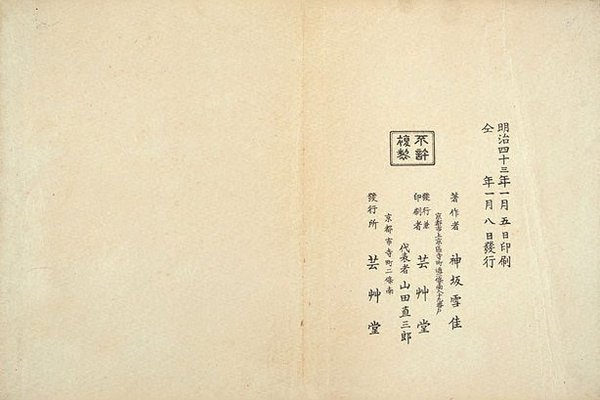 明治四十三年一月五日印刷
仝 年一月八日發行
不許
複製
著作者 神坂雪佳
京都市上京區寺町通二條南
發行兼
印刷者 芸艸堂
代表者 山田直三郎
京都市寺町二條南
發行所 芸艸堂